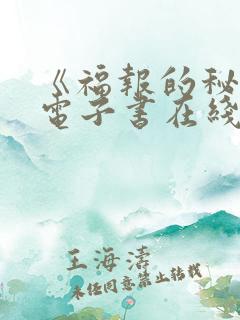 《福報的秘
電子書在綫
王海濤
未经同意禁止转载